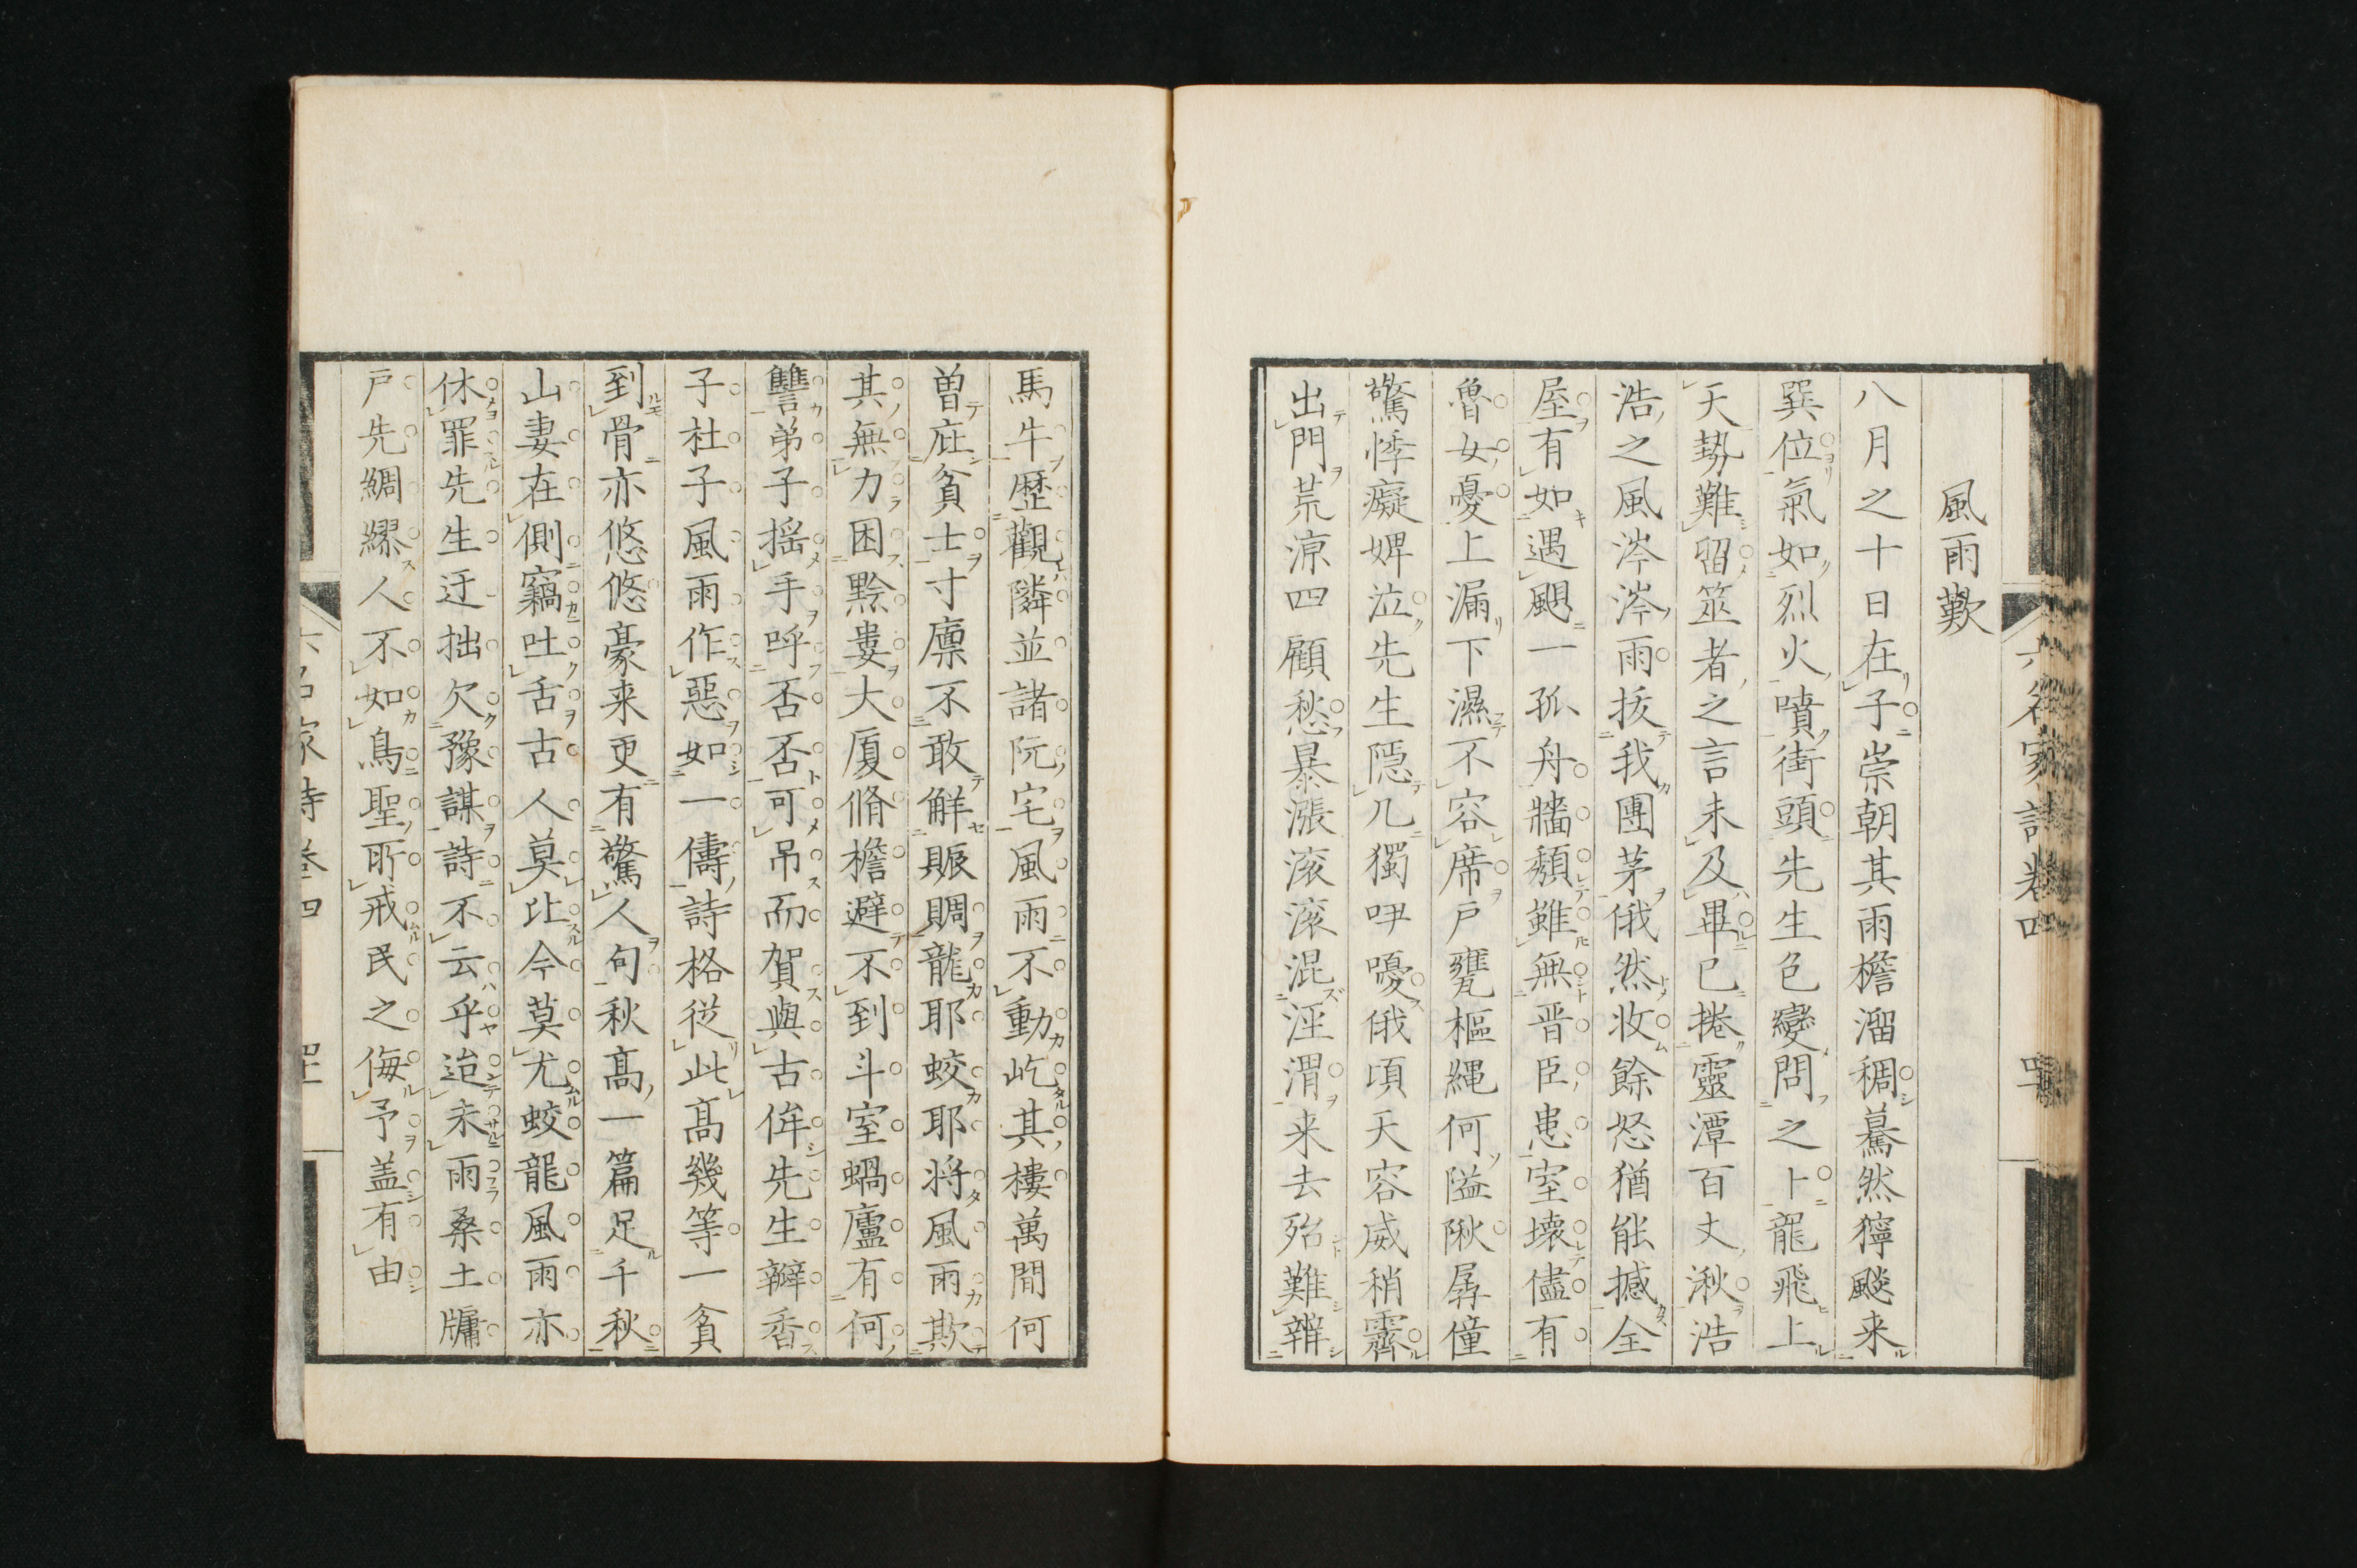 風雨歎
八月之十日在子崇朝其雨檐溜稠驀然獰颷来
巽位氣如烈火噴街頭先生色變問之卜龍飛上
天勢難留筮者之言未及畢已捲靈潭百丈湫浩
浩之風涔涔雨抜我團茅俄然收餘怒猶能撼全
屋有如遇颶一孤舟牆頽雖無晋臣患室壊儘有
魯女憂上漏下濕不容席戸甕樞縄何隘陬孱僮
驚悸癡婢泣先生隠几獨吚嚘俄頃天容威稍霽
出門荒凉四顧愁暴漲滚滚混涇渭来去殆難辨
馬牛歴觀隣並諸阮宅風雨不動屹其樓萬間何
曽庇貧士寸廪不敢觧賑賙龍耶蛟耶将風雨欺
其無力困黔婁大厦脩檐避不到斗室蝸廬有何
讐弟子揺手呼否否可吊而賀與古侔先生瓣香
子杜子風雨作惡如一儔詩格従此髙幾等一貧
到骨亦悠悠豪来更有驚人句秋髙一篇足千秋
山妻在側竊吐舌古人莫比今莫尤蛟龍風雨亦
休罪先生迂拙欠豫謀詩不云乎迨未雨桑土牖
戸先綢繆人不如鳥聖所戒民之侮予盖有由